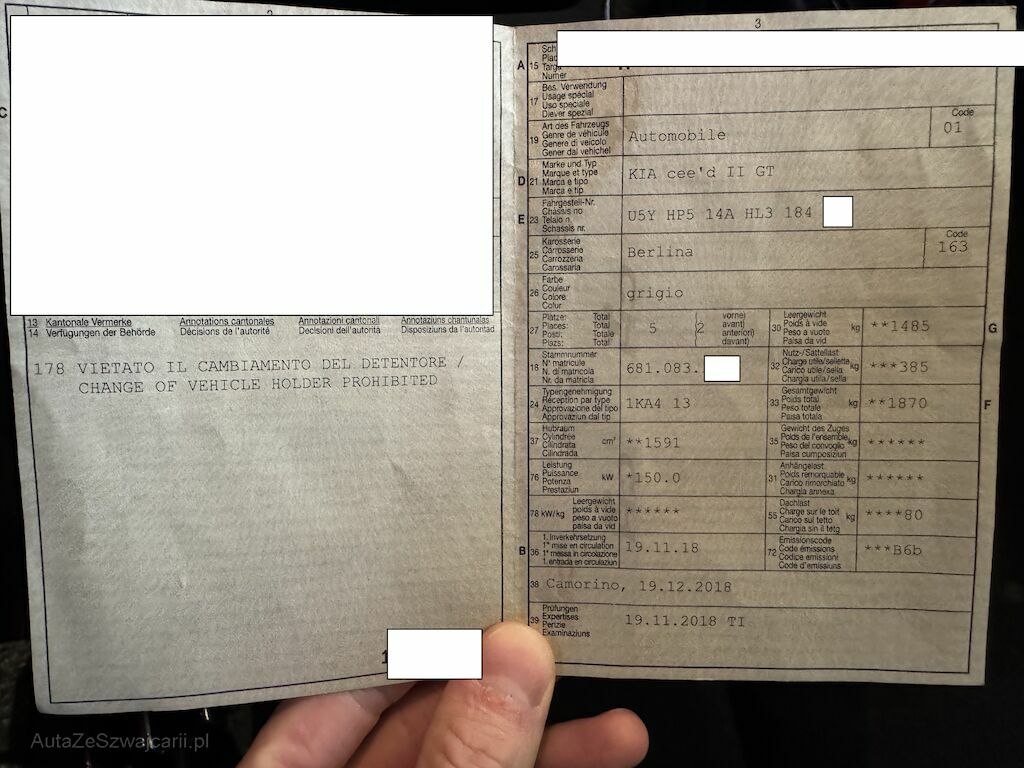 2
C
13 Kantonale Vermerke Annotations cantonales Annotazioni cantonali Annotaziuns chantunalas
14 Verfügungen der Behörde Décisions de l'autorité Decisioni dell'autorità Disposiziuns da l'autoritad
178 VIETATO IL CAMBIAMENTO DEL DETENTORE /
CHANGE OF VEHICLE HOLDER PROHIBITED
3
A 15
Targa
Numer
17 Bes. Verwendung
Usage spécial
Uso speciale
Diever spezial
19 Art des Fahrzeugs
Genre de véhicule
Genere di veicolo
Gener dal vehichel
Automobile
Code
01
D 21 Marke und Typ
Marque et type
Marca e tipo
Marca e tip
KIA cee'd II GT
E 23 Fahrgestell-Nr.
Châssis no
Telaio n.
Schassis nr.
U5Y HP5 14A HL3 184
25 Karosserie
Carrosserie
Carrozzeria
Carossaria
Berlina
Code
163
26 Farbe
Couleur
Colore
Colur
grigio
27 Plätze: Total
Places: Total
Posti: Totale
Plazs: Total
5 (2
vorne)
avant)
anteriori)
davant)
30 Leergewicht
Poids à vide
Peso a vuoto
Paisa da vid
kg **1485 G
18 Stammnummer
N° matricule
N. di matricola
Nr. da matricla
681.083.
32 Nutz-/Sattellast
Charge utile/sellette
Carico utile/sella
Chargia utila/sella
kg ***385
24 Typengenehmigung
Réception par type
Approvazione del tipo
Approvaziun dal tip
1KA4 13
33 Gesamtgewicht
Poids total
Peso totale
Paisa totala
kg **1870 F
37 Hubraum
Cylindrée
Cilindrata
Cilindrada
cm³ **1591
35 Gewicht des Zuges
Poids de l'ensemble
Peso del convoglio
Paisa cumposiziun
kg ******
76 Leistung
Puissance
Potenza
Prestaziun
kW *150.0
31 Anhängelast
Poids remorquable
Carico rimorchiato
Chargia annexa
kg ******
78 kW/kg Leergewicht
poids à vide
peso a vuoto
paisa da vid
******
55 Dachlast
Charge sur le toit
Carico sul tetto
Chargia sin il tetg
kg ****80
B 36 1. Inverkehrsetzung
1re mise en circulation
1a messa in circolazione
1. entrada en circulaziun
19.11.18
72 Emissionscode
Code émissions
Codice emissioni
Code d'emissiuns
***B6b
38 Camorino, 19.12.2018
39 Prüfungen
Expertises
Perizie
Examinaziuns
19.11.2018 TI
AutaZeSzwajcarii.pl